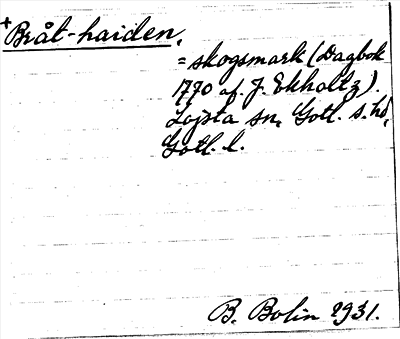 +Bråt-haiden,
= skogsmark (Dagbok
1790 af J. Ekholtz).
Lojsta sn, Gotl. s. hd,
Gotl. l.
B. Bolin 1931.